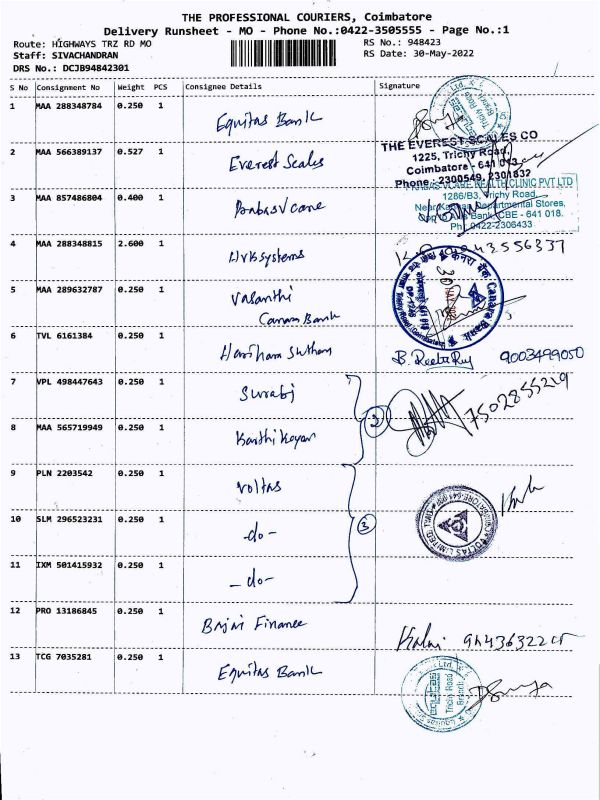 THE PROFESSIONAL COURIERS, Coimbatore
Delivery Runsheet - MO - Phone No.:0422-3505555 - Page No.:1
Route: HIGHWAYS TRZ RD MO
RS No.: 948423
Staff: SIVACHANDRAN
RS Date: 30-May-2022
DRS No.: DCJB94842301
S No Consignment No Weight PCS Consignee Details Signature
1 MAA 288348784 0.250 1 Equitas Bank
2 MAA 566389137 0.527 1 Everest Scales
THE EVEREST SCALES CO
1225, Trichy Road,
Coimbatore - 641 013
Phone : 2300549, 2301832
3 MAA 857486804 0.400 1
HEALTH CLINIC PVT LTD
1286/B3, Trichy Road,
Departmental Stores,
Bank, CBE - 641 018.
Ph: 0422-2306433
4 MAA 288348815 2.600 1 Hvksystems
5 MAA 289632787 0.250 1 Vasanthi
Canara Bank
Canara Bank
6 TVL 6161384 0.250 1 B. 9003499050
7 VPL 498447643 0.250 1 Surabi
2 7502855219
8 MAA 565719949 0.250 1 Karthikeyan
9 PLN 2203542 0.250 1 Voltas
10 SLM 296523231 0.250 1 -do- 3
VOLTAS LIMITED
11 IXM 501415932 0.250 1 -do-
12 PRO 13186845 0.250 1 Bajai Finance
13 TCG 7035281 0.250 1 Equitas Bank
equitas
Trichy Road
Branch